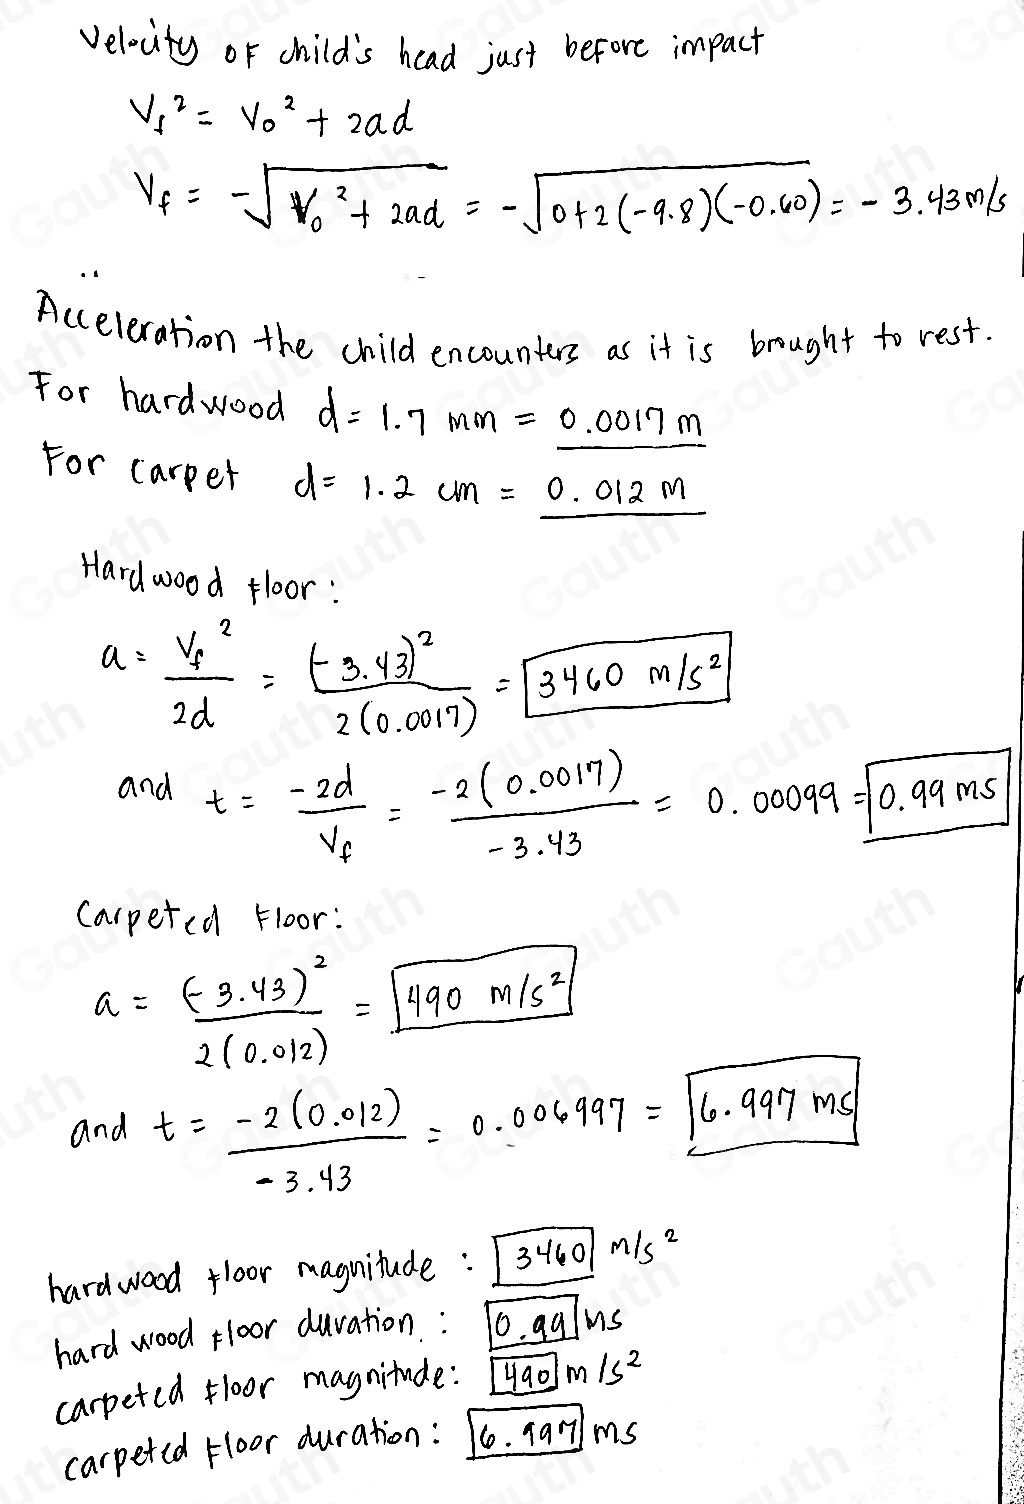 Velocity of child's head just before impact
Vf² = V₀² + 2ad
Vf = -√(V₀² + 2ad) = -√(0+2(-9.8)(-0.60)) = - 3.43 m/s
Acceleration the child encounters as it is brought to rest.
For hardwood d = 1.7 mm = 0.0017 m
For carpet d = 1.2 cm = 0.012 m
Hardwood floor:
a = Vf²/2d = (-3.43)²/2(0.0017) = 3460 m/s²
and t = -2d/Vf = -2(0.0017)/-3.43 = 0.00099 = 0.99 ms
Carpeted Floor:
a = (-3.43)²/2(0.012) = 490 m/s²
and t = -2(0.012)/-3.43 = 0.006997 = 6.997 ms
hardwood floor magnitude : 3460 m/s²
hard wood floor duration : 0.99 ms
carpeted floor magnitude: 490 m/s²
carpeted floor duration : 6.997 ms